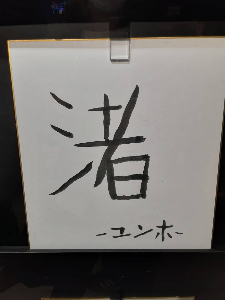 渚
-ユンホ-